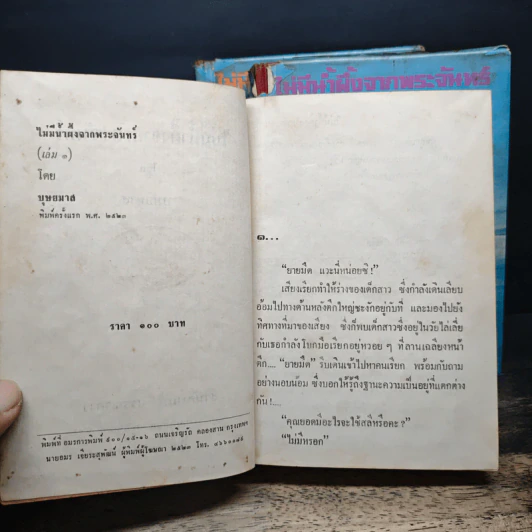 ไม่มีน้ำผึ้งจากพระจันทร์
ไม่มีน้ำผึ้งจากพระจันทร์
(เล่ม ๑)
โดย
บุษยมาส
พิมพ์ครั้งแรก พ.ศ. ๒๕๒๓
ราคา ๑๐๐ บาท
พิมพ์ที่ อมรการพิมพ์ ๕๐๐/๑๕-๑๖ ถนนเจริญรัถ คลองสาน กรุงเทพฯ
นายอมร เจียระสุพัฒน์ ผู้พิมพ์ผู้โฆษณา ๒๕๒๓ โทร.
๑...
"ยายมืด แวะนี่หน่อยซิ!"
เสียงเรียกทำให้ร่างของเด็กสาว ซึ่งกำลังเดินเลียบ
อ้อมไปทางด้านหลังตึกใหญ่ชะงักอยู่กับที่ และมองไปยัง
ทิศทางที่มาของเสียง ซึ่งก็พบเด็กสาวซึ่งอยู่ในวัยไล่เลี่ย
กับเธอกำลังโบกมือเรียกอยู่หวอย ๆ ที่ลานเฉลียงหน้า
ตึก.... "ยายมืด" รีบเดินเข้าไปหาคนเรียก พร้อมกับถาม
อย่างนอบน้อม ซึ่งบอกให้รู้ถึงฐานะความเป็นอยู่ที่แตกต่าง
กัน!....
"คุณยอดมีอะไรจะใช้สลิหรือคะ?"
"ไม่มีหรอก"